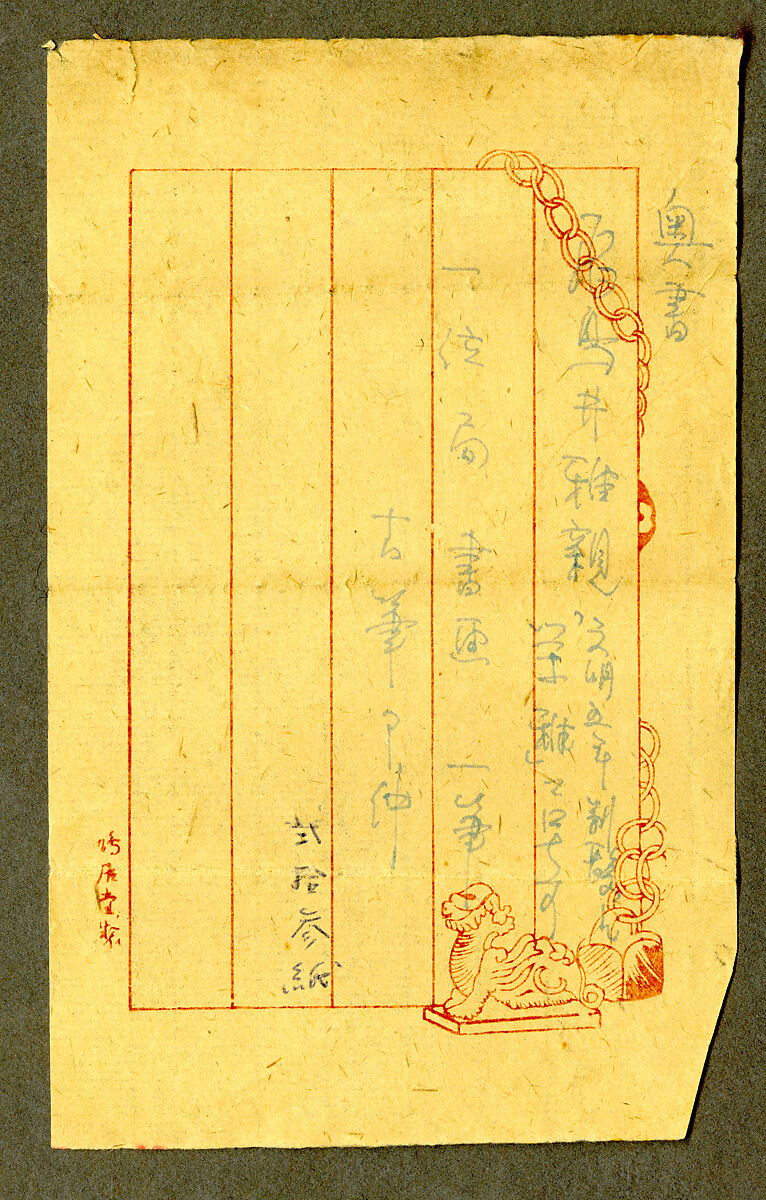 奥書
飛鳥井雅親
文明五年剃髪
栄雅ト号ス
一位局 書画 一筆
古筆了仲
弐拾参紙
鳩居堂製